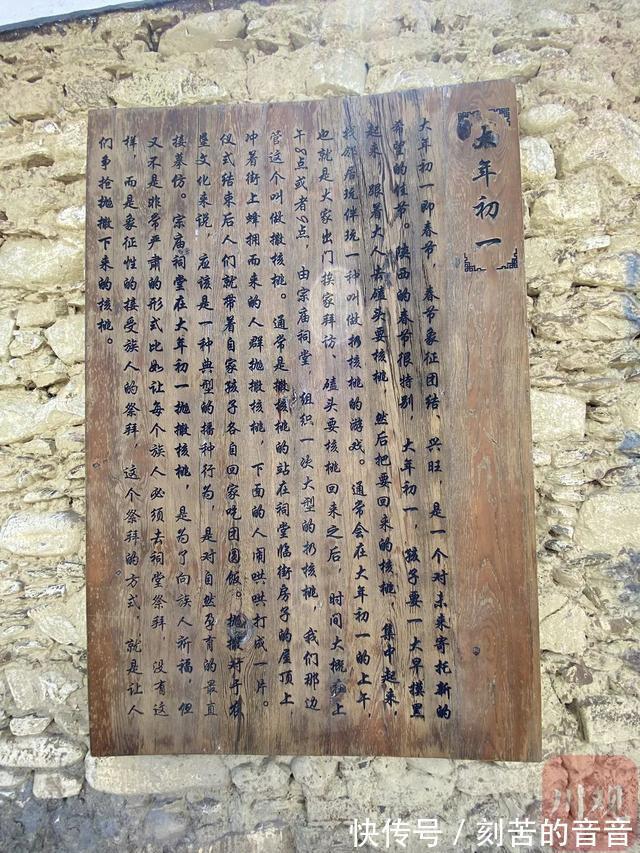 大年初一
大年初一即春节，春节象征团结、兴旺，是一个对未来寄托新的
希望的佳节。陕西的春节很特别，大年初一，孩子要一大早摸黑
起来，跟着大人去磕头要核桃，然后把要回来的核桃，集中起来，
找邻居玩伴玩一种叫做扔核桃的游戏。通常会在大年初一的上午，
也就是大家出门挨家拜访，磕头要核桃回来之后，时间大概在上
午 点或者 点，由宗庙祠堂，组织一次大型的扔核桃，我们那边
管这个叫做撒核桃。通常是撒核桃的站在祠堂临街房子的屋顶上，
冲着街上蜂拥而来的人群抛撒核桃，下面的人闹哄哄打成一片。
仪式结束后人们就带着自家孩子各自回家吃团圆饭。抛撒对于农
垦文化来说，应该是一种典型的播种行为，是对自然孕育的最直
接摹仿。宗庙祠堂在大年初一抛撒核桃，是为了向族人祈福，但
又不是非常严肃的形式比如让每个族人必须去祠堂祭拜，没有这
样，而是象征性的接受族人的祭拜，这个祭拜的方式，就是让人
们争抢抛撒下来的核桃。
川观
快传号 / 刻苦的音音